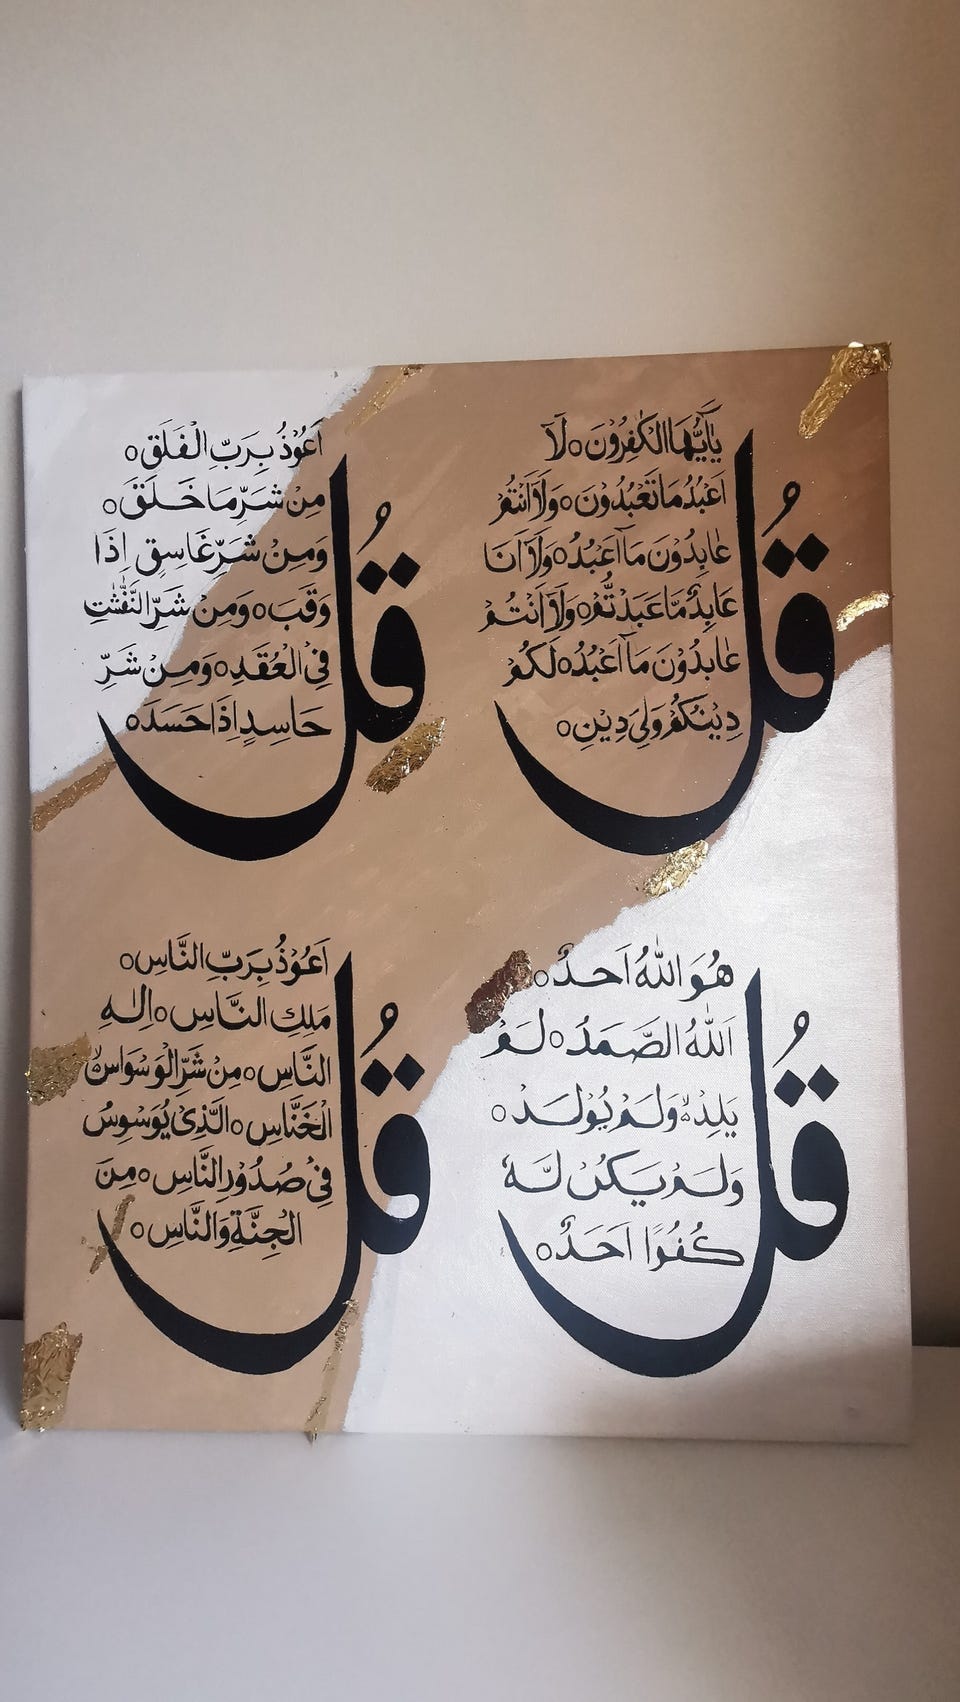 قُل
يٰٓاَيُّهَا الْكٰفِرُوْنَ ○ لَآ
اَعْبُدُ مَا تَعْبُدُوْنَ ○ وَلَآ اَنْتُمْ
عٰبِدُوْنَ مَآ اَعْبُدُ ○ وَلَآ اَنَا
عَابِدٌ مَّا عَبَدْتُّمْ ○ وَلَآ اَنْتُمْ
عٰبِدُوْنَ مَآ اَعْبُدُ ○ لَكُمْ
دِيْنُكُمْ وَلِيَ دِيْنِ ○
قُل
اَعُوْذُ بِرَبِّ الْفَلَقِ ○
مِنْ شَرِّ مَا خَلَقَ ○
وَمِنْ شَرِّ غَاسِقٍ اِذَا
وَقَبَ ○ وَمِنْ شَرِّ النَّفّٰثٰتِ
فِى الْعُقَدِ ○ وَمِنْ شَرِّ
حَاسِدٍ اِذَا حَسَدَ ○
قُل
هُوَ اللّٰهُ اَحَدٌ ○
اَللّٰهُ الصَّمَدُ ○ لَمْ
يَلِدْ ۙ وَلَمْ يُوْلَدْ ○
وَلَمْ يَكُنْ لَّهٗ
كُفُوًا اَحَدٌ ○
قُل
اَعُوْذُ بِرَبِّ النَّاسِ ○
مَلِكِ النَّاسِ ○ اِلٰهِ
النَّاسِ ○ مِنْ شَرِّ الْوَسْوَاسِ ۙ
الْخَنَّاسِ ○ الَّذِىْ يُوَسْوِسُ
فِىْ صُدُوْرِ النَّاسِ ○ مِنَ
الْجِنَّةِ وَالنَّاسِ ○